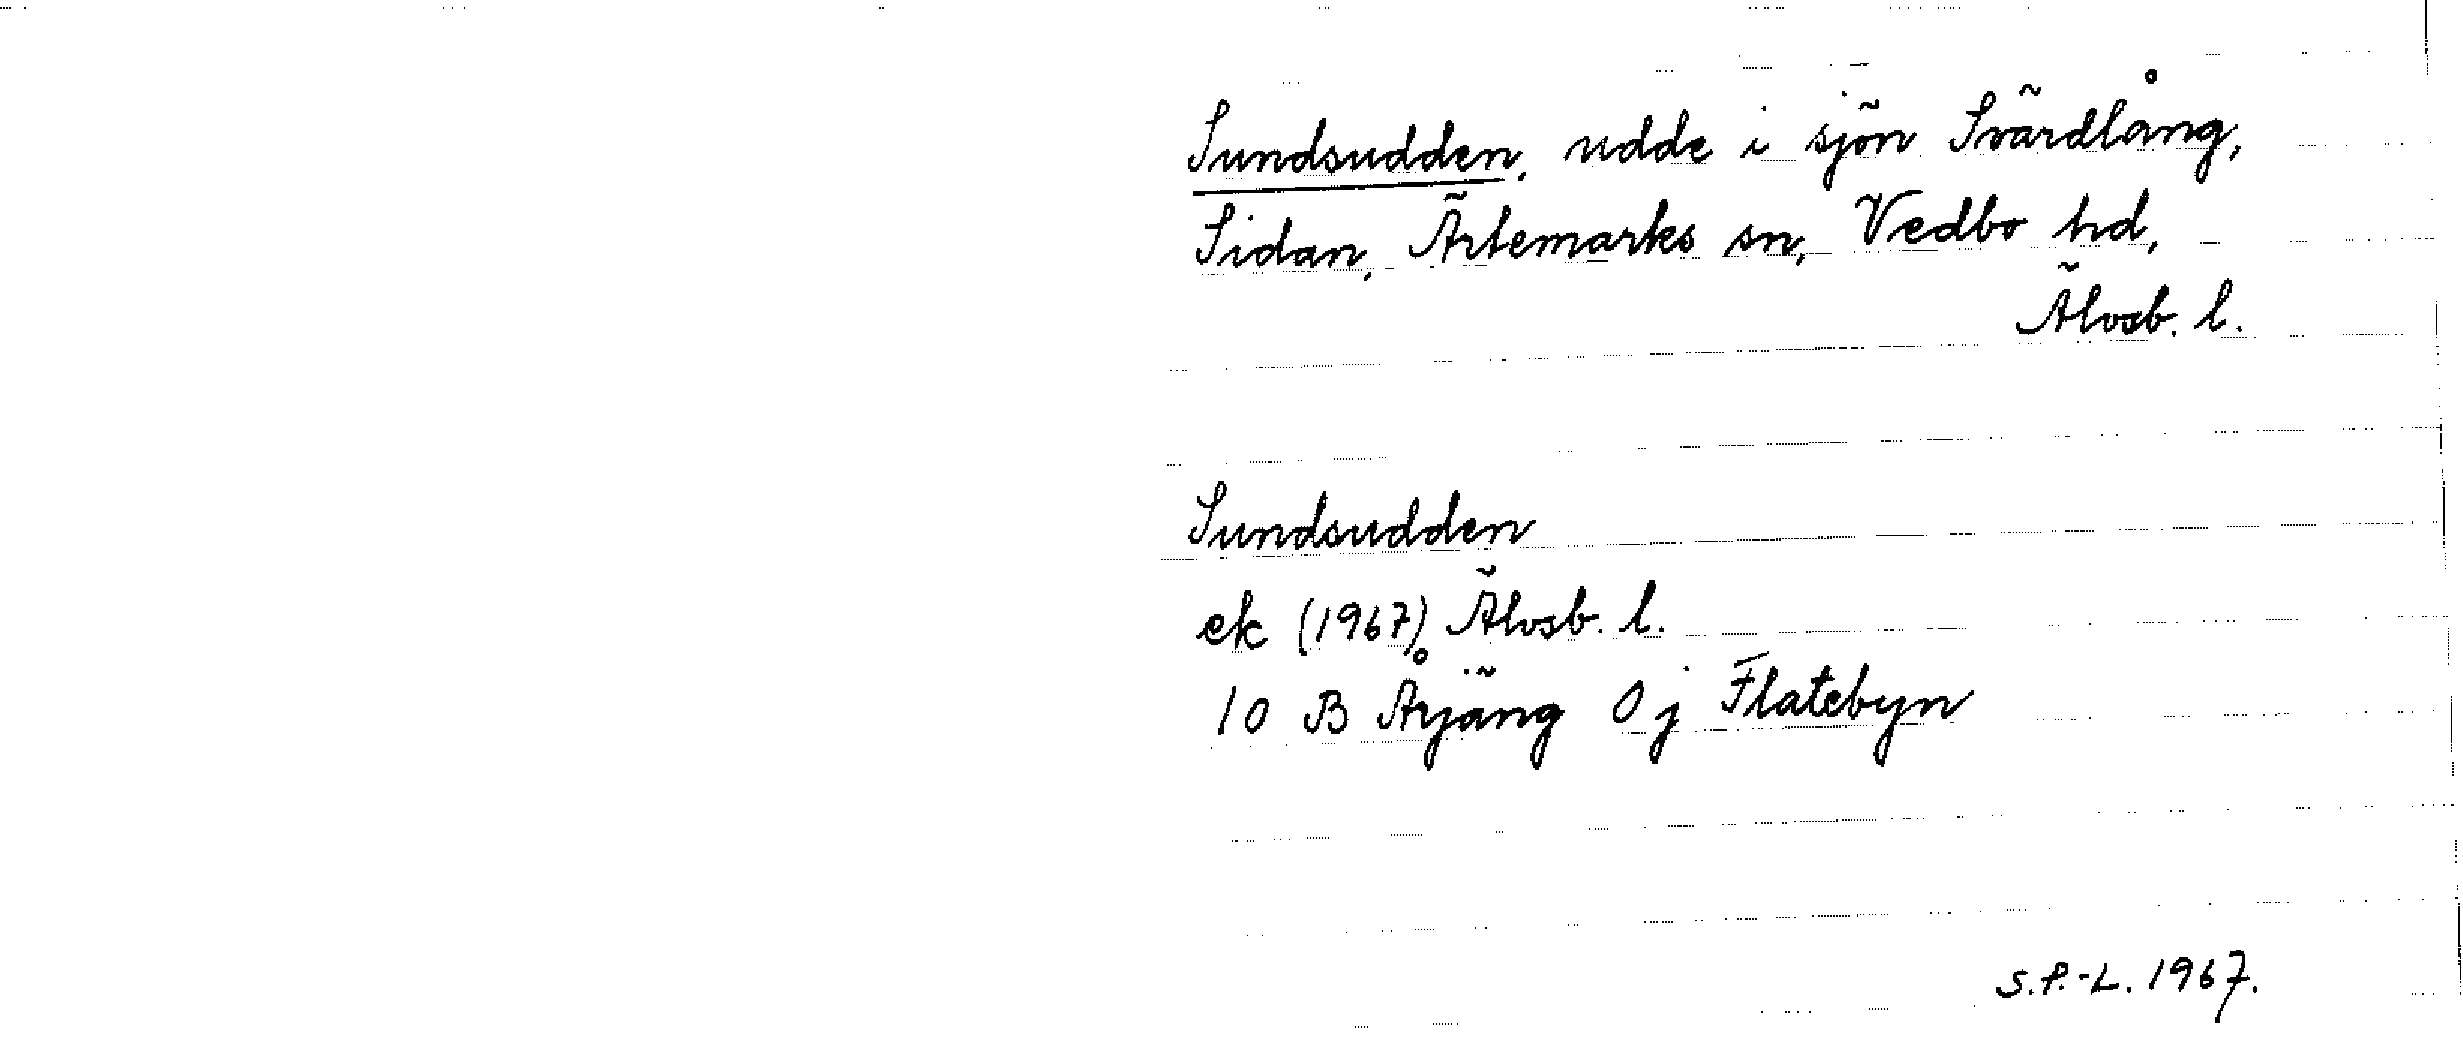 Sundsudden, udde i sjön Svärdlång,
Sidan, Ärtemarks sn, Vedbo hd,
Älvsb. l.
Sundsudden
ek (1967) Älvsb. l.
10 B Årjäng 0 j Flatebyn
S.P.-L. 1967.